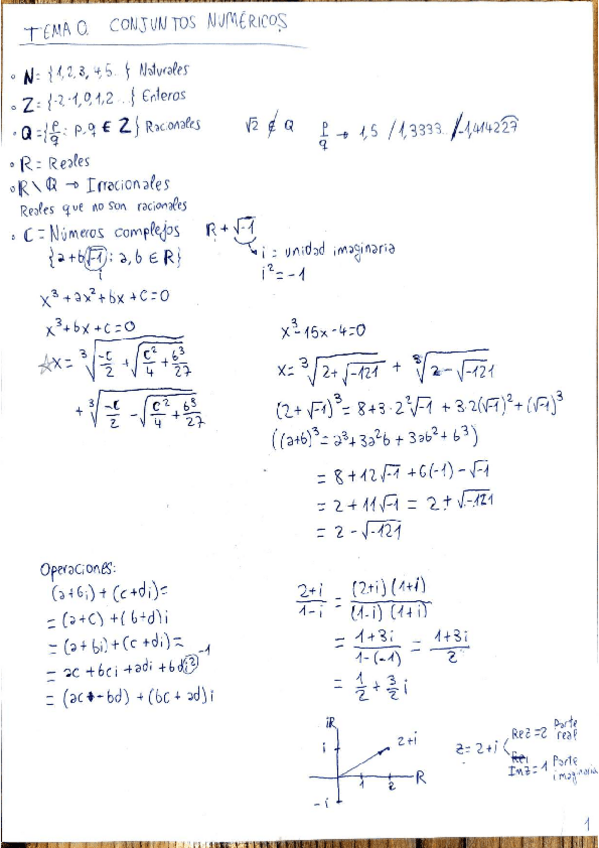 TEMA 0. CONJUNTOS NUMÉRICOS
• N = {1,2,3,4,5...} Naturales
• Z = {-2-1,0,1,2...} Enteros
• Q = {p/q : p,q ∈ Z} Racionales √2 ∉ Q p/q → 1,5 / 1,3333.. / -1,414227
• R = Reales
• R \ Q → Irracionales
Reales que no son racionales
• C = Números complejos R + √-1
{a+b√-1 : a,b ∈ R} i = unidad imaginaria
i i² = -1
x³+ax²+bx+c=0
x³+bx+c=0
☆x = ³√(-c/2 + √(c²/4 + b³/27))
+ ³√(-c/2 - √(c²/4 + b³/27))
x³-15x-4=0
x = ³√(2+√-121) + ³√(2-√-121)
(2+√-1)³ = 8+3·2²√-1 + 3·2(√-1)² + (√-1)³
((a+b)³ = a³+3a²b+3ab²+b³)
= 8+12√-1 +6(-1) -√-1
= 2+11√-1 = 2+√-121
= 2-√-121
Operaciones:
(a+bi)+(c+di)=
= (a+c)+(b+d)i
= (a+bi)+(c+di)=
= ac+bci+adi+bdi² -1
= (ac-bd)+(bc+ad)i
(2+i)/(1-i) = (2+i)(1+i)/(1-i)(1+i)
= (1+3i)/(1-(-1)) = (1+3i)/2
= 1/2 + 3/2 i
iR
i 2+i
1 2 R
-i
z = 2+i
Rez=2 Parte real
Imz=1 Parte imaginaria
1